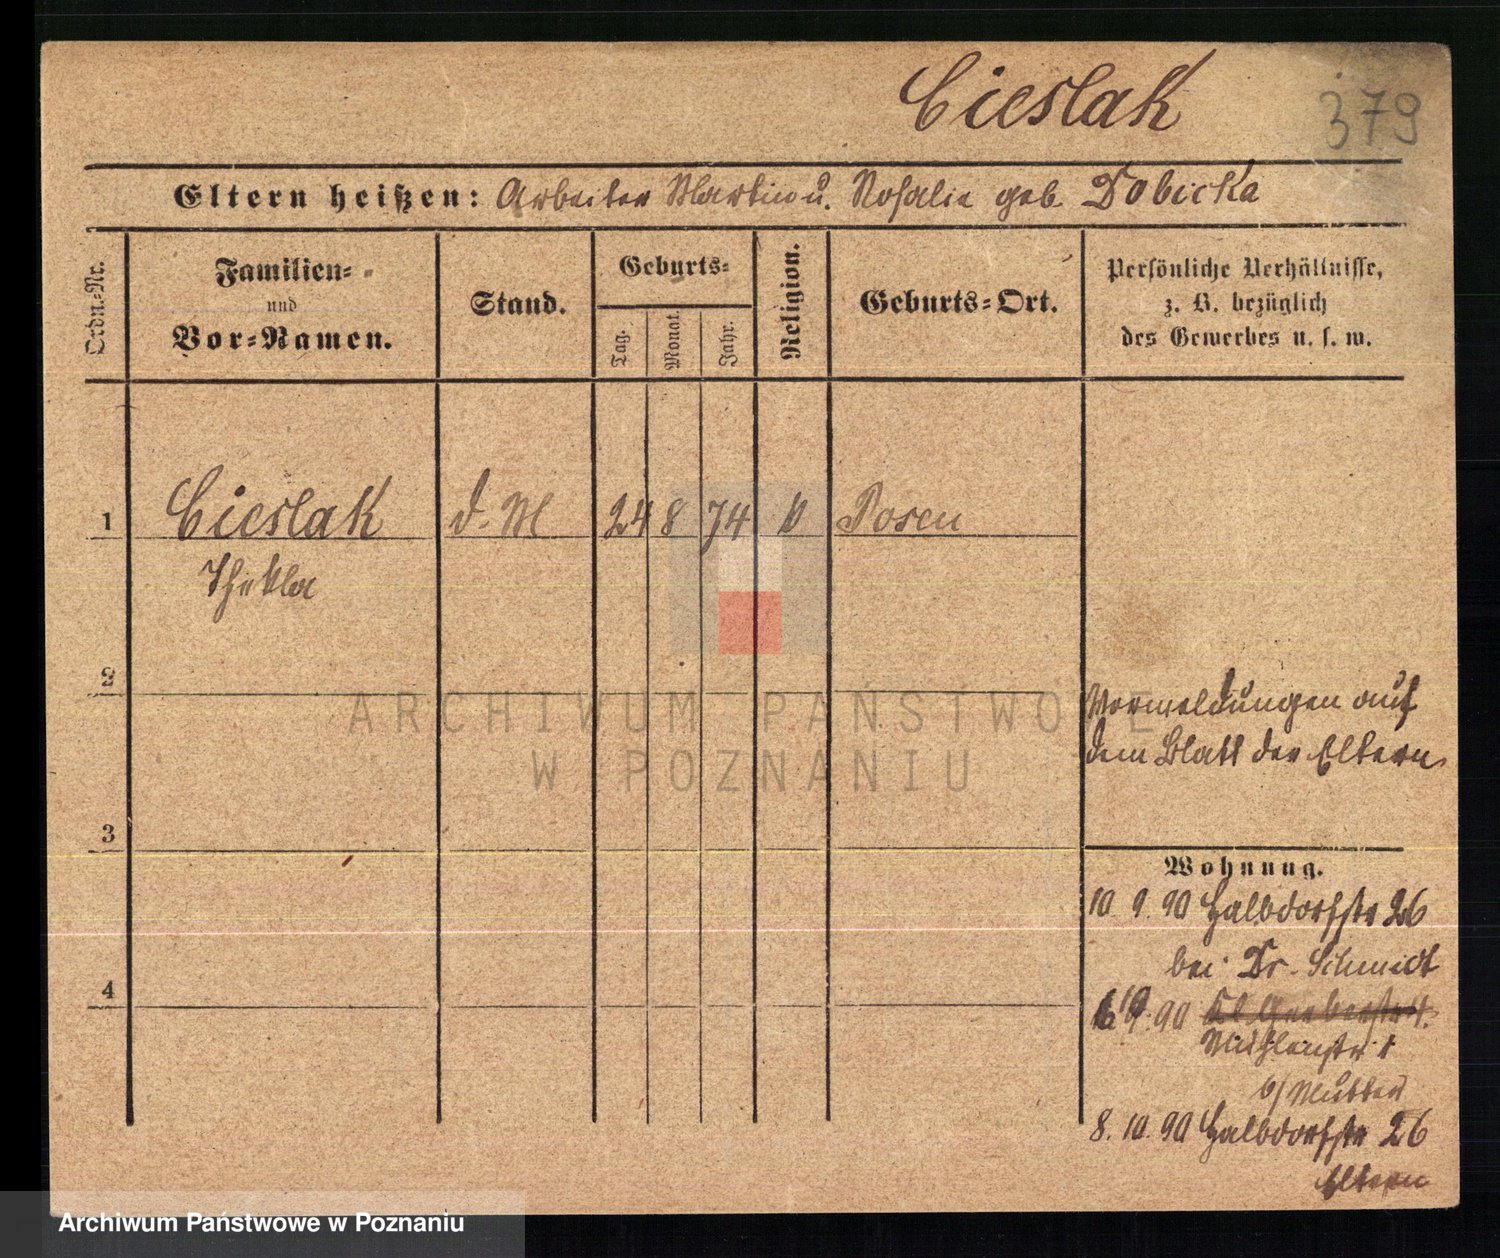 Cieslak
379
Eltern heißen: Arbeiter Martin u. Rosalie geb. Dobicka
Ordn.-Nr.
Familien-
und
Vor-Namen.
Stand.
Geburts-
Tag.
Monat.
Jahr.
Religion.
Geburts-Ort.
Persönliche Verhältnisse,
z. B. bezüglich
des Gewerbes u. s. w.
1 Cieslak d. M 24 8 74 Posen
Thekla
2
Vormeldungen auf
dem Blatt der Eltern
3
Wohnung.
10 9. 90 Halbdorfstr 26
bei Dr. Schmidt
4
90 Kl. Gerberstr 4.
Mühlenstr 1
b/ Mutter
8. 10. 90 Halbdorfstr 26
Eltern
ARCHIWUM PAŃSTWOWE
W POZNANIU
Archiwum Państwowe w Poznaniu